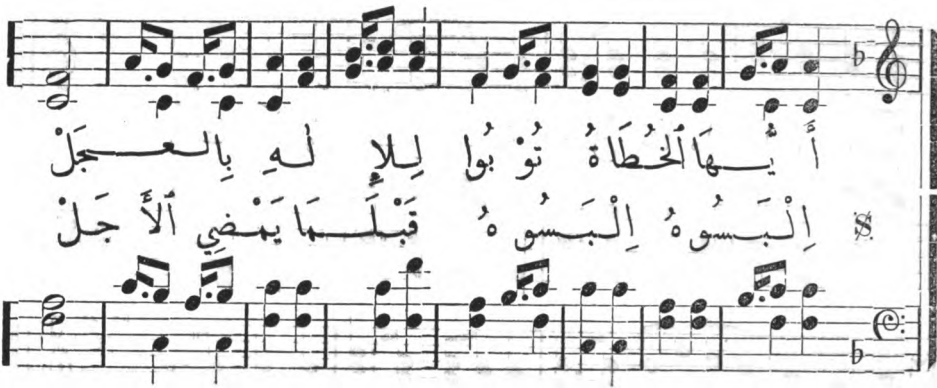 أَ يُّـهَا ٱلْخُطَاةُ تُوْ بُوا لِـلإِ لٰـهِ بِالـعـجَلْ
إِلْـبَـسُوهُ إِلْـبَـسُوهُ قَبْلَـمَا يَمْضِي ٱلأَ جَلْ